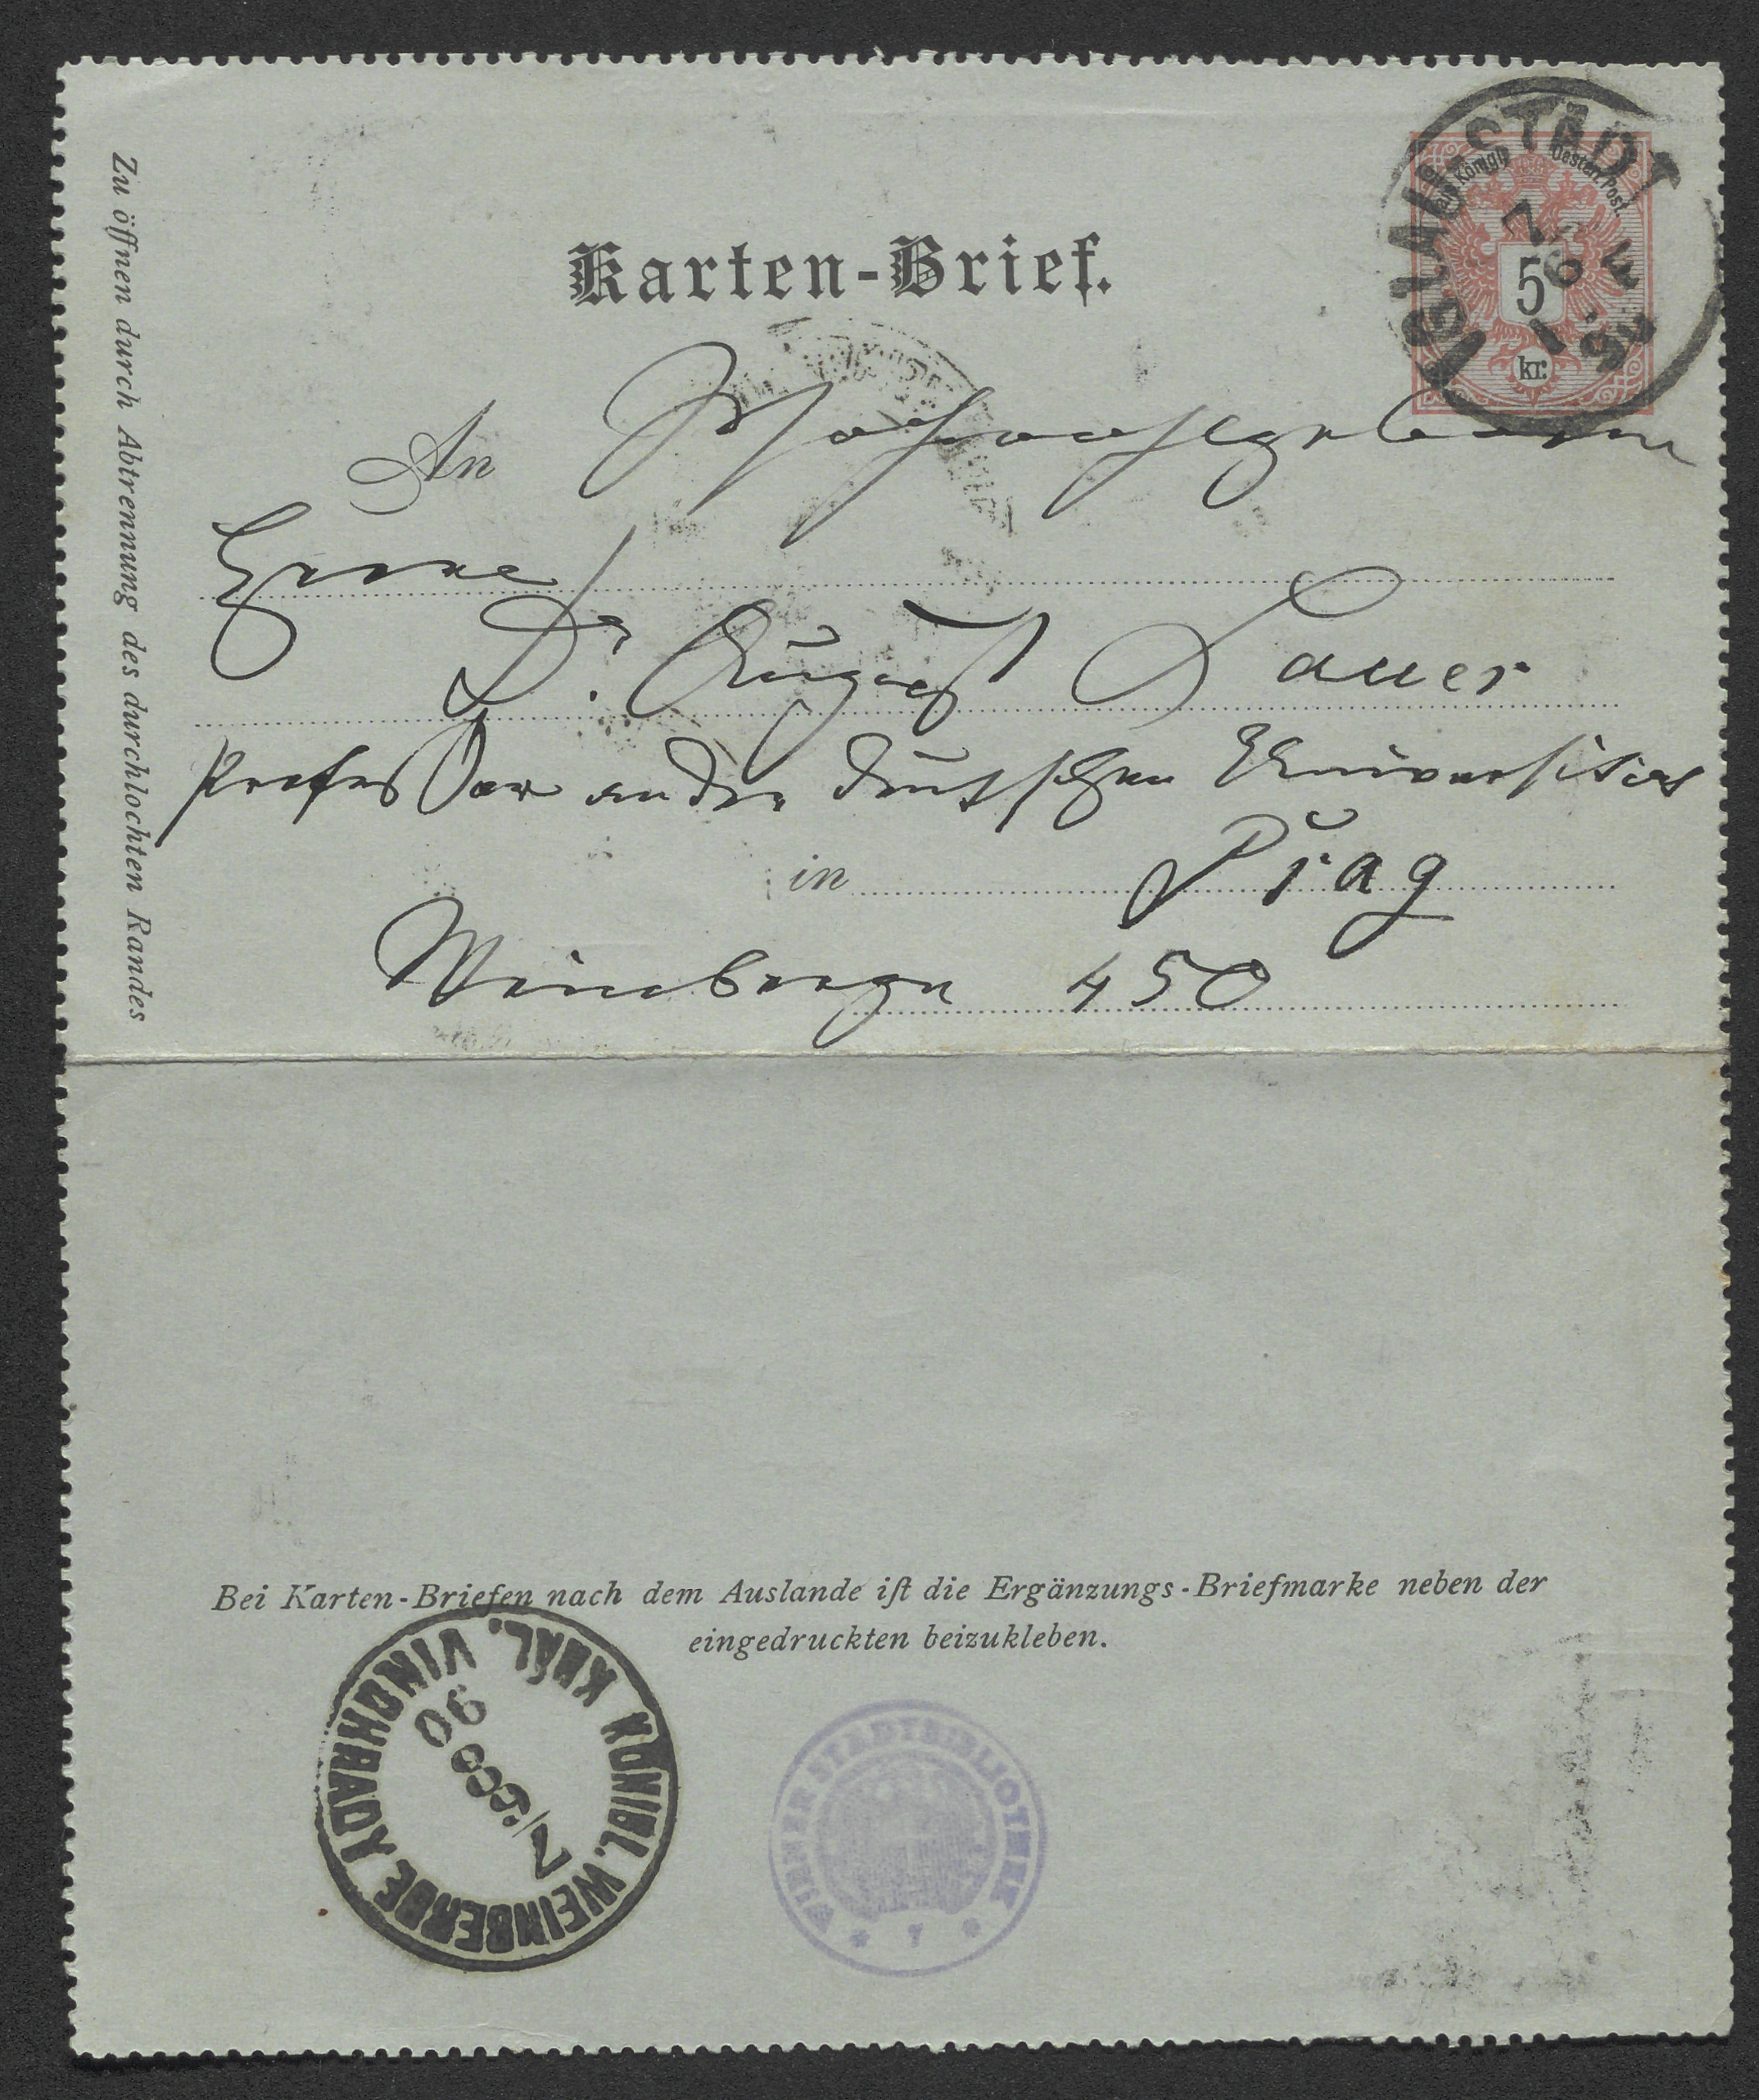 Karten-Brief.
Kais. Königl. Oesterr. Post.
5
kr.
IGLAU-STADT
7 6
An Hochwohlgeboren
Herrn
Dr. August Sauer
Professor an der deutschen Universität
in Prag
Weinberge 450
Zu öffnen durch Abtrennung des durchlochten Randes
Bei Karten-Briefen nach dem Auslande iſt die Ergänzungs-Briefmarke neben der
eingedruckten beizukleben.
KÖNIGL. WEINBERGE
KRÁL. VINOHRADY
90
WIENER STADTBIBLIOTHEK